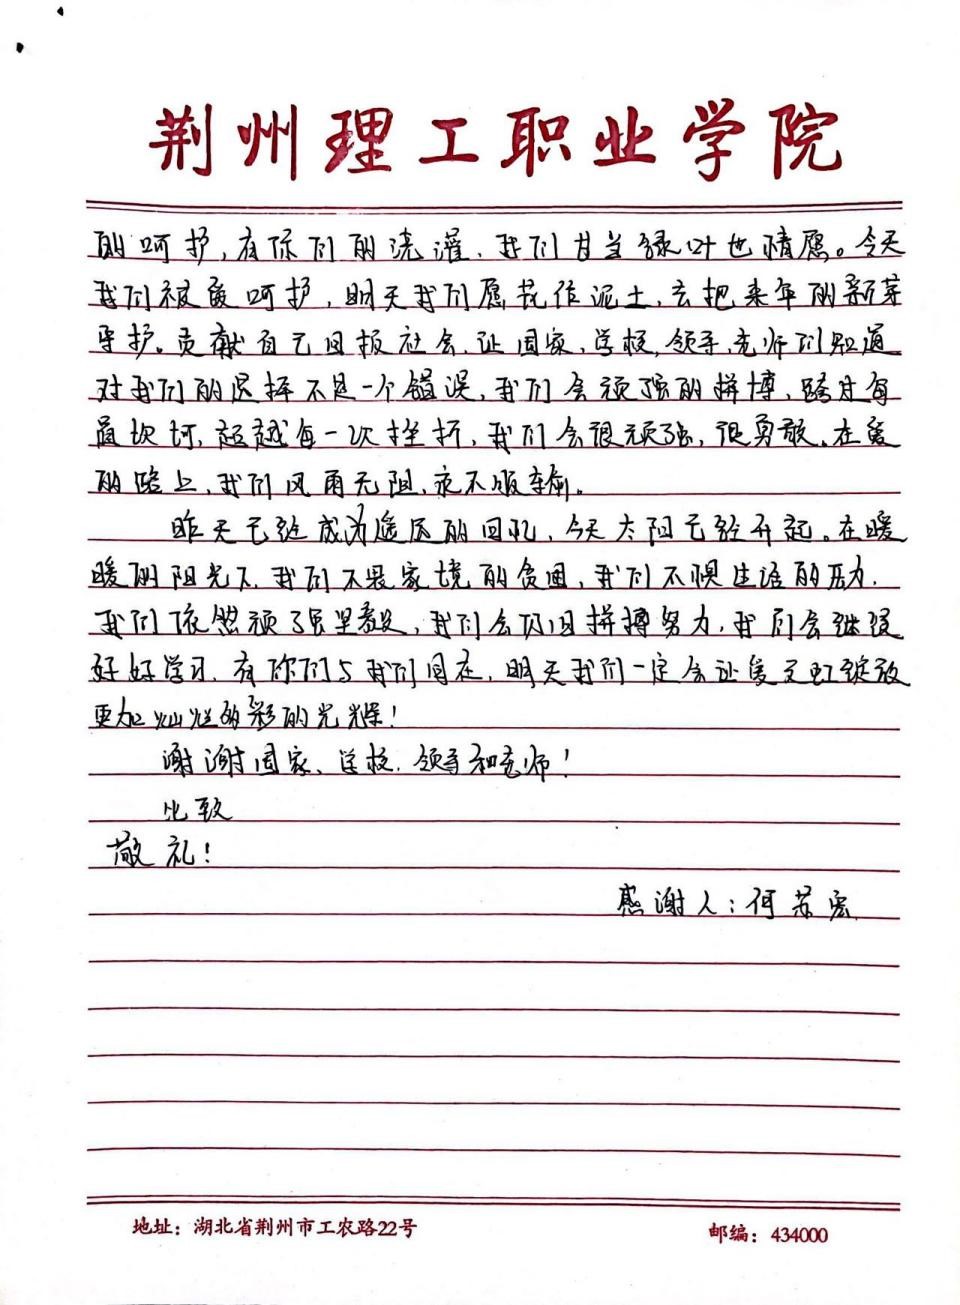 荆州理工职业学院
的呵护,有你们的浇灌,我们甘当绿叶也情愿。今天
我们被爱呵护,明天我们愿花作泥土,去把来年的新芽
守护。贡献自己回报社会,让国家,学校,领导,老师们知道
对我们的选择不是一个错误,我们会顽强的拼博,踏过每
道坎坷,超越每一次挫折,我们会很顽强,很勇敢,在爱
的路上,我们风雨无阻,永不服输。
昨天已经成为遥远的回忆,今天太阳已经升起。在暖
暖的阳光下,我们不畏家境的贫困,我们不惧生活的压力,
我们依然顽强坚毅,我们会仍旧拼搏努力,我们会继续
好好学习,有你们与我们同在,明天我们一定会让爱之虹绽放
更加灿烂的彩的光辉!
谢谢国家、学校,领导和老师!
此致
敬礼!
感谢人:何苏宏
地址:湖北省荆州市工农路22号
邮编:434000